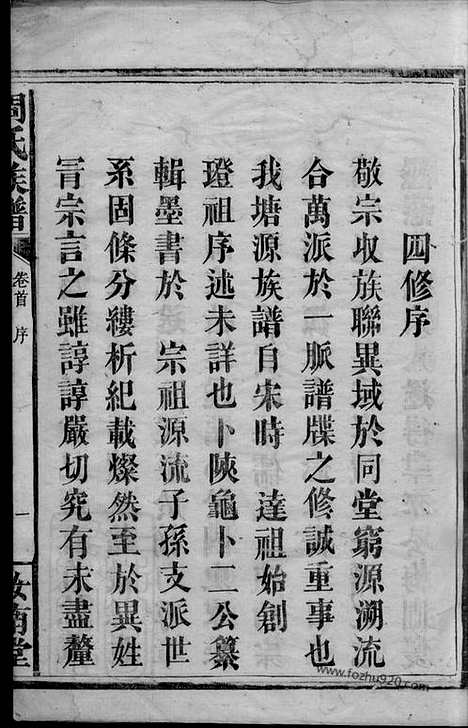 四修序
敬宗收族聯異域於同堂窮源溯流
合萬派於一脈譜牒之修誠重事也
我塘源族譜自宋時 達祖始創
璒祖序述未詳也卜陝龜卜二公纂
輯墨書於 宗祖源流子孫支派世
系固條分縷析紀載燦然至於異姓
冐宗言之雖諄諄嚴切究有未盡釐
周氏族譜 卷首 序 一 汝南堂
www.fozhu920.com